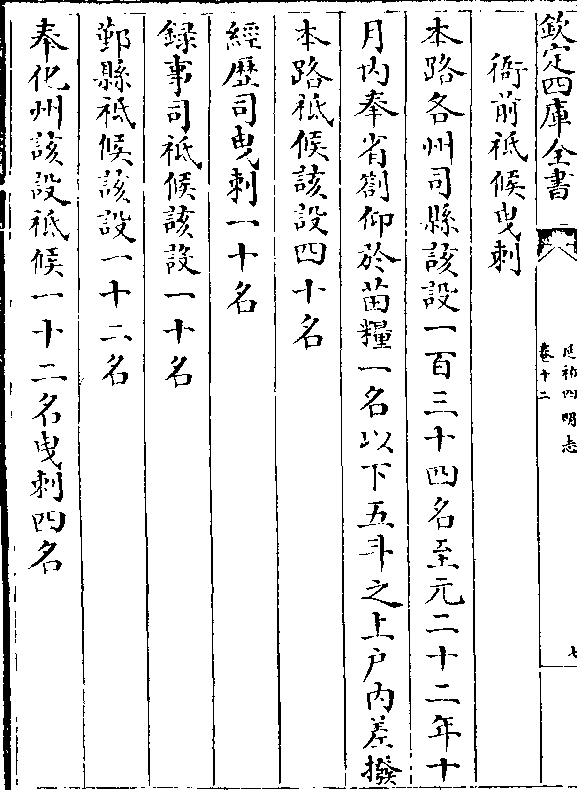 欽定四庫全書
延祐四明志
卷十二
七
衙前祗候曳剌
本路各州司縣該設一百三十四名至元二十二年十
月内奉省劄仰於苗糧一名以下五斗之上户内差撥
本路祗候該設四十名
經歷司曳剌一十名
録事司祗候該設一十名
鄞縣祗候該設一十二名
奉化州該設祗候一十二名曳剌四名